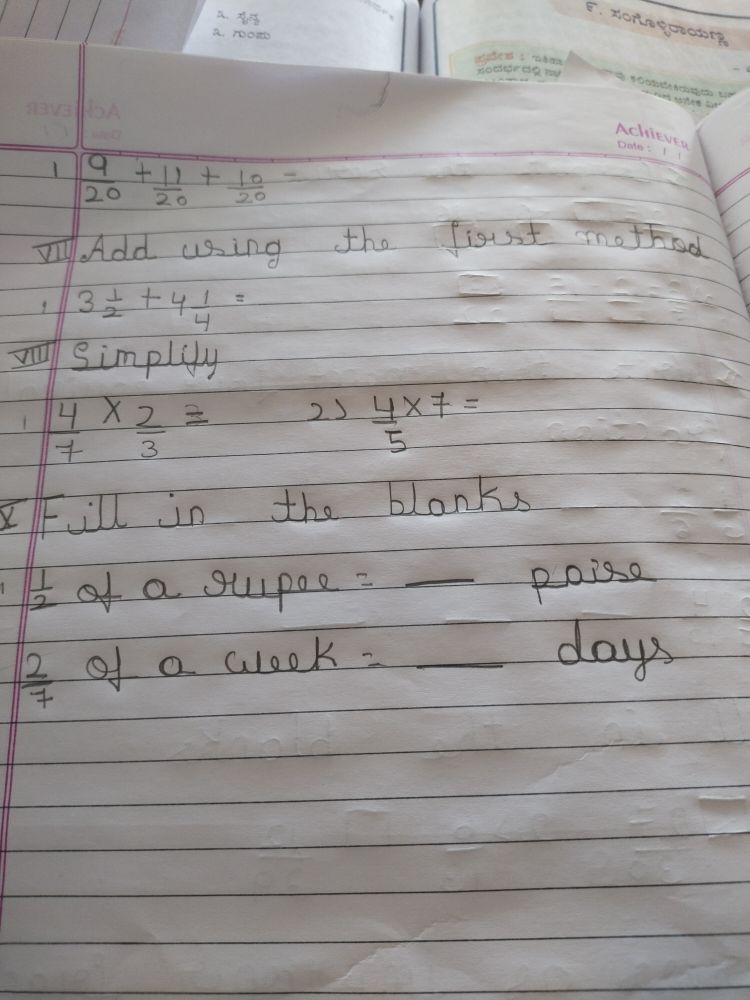 ೩. ಸೈನ್ಯ
೩. ಗುಂಪು
೯. ಸಂಗೊಳ್ಳಿರಾಯಣ್ಣ
ಪ್ರವೇಶ :
ACHIEVER
Date :
1 9/20 + 11/20 + 10/20 =
VII Add using the first method
1 3 1/2 + 4 1/4 =
VIII Simplify
1 4/7 × 2/3 = 2) 4/5 × 7 =
X Fill in the blanks
1 1/2 of a rupee = __ paise
2/7 of a week = __ days